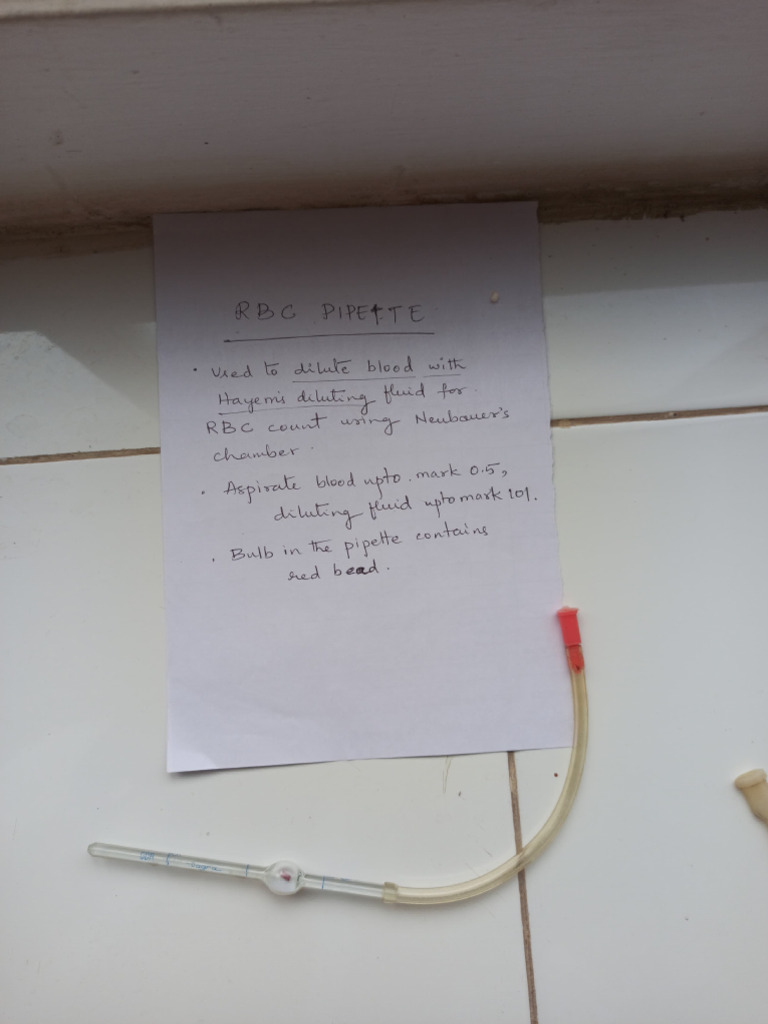 RBC PIPETTE
• Used to dilute blood with
Hayem's diluting fluid for
RBC count using Neubauer's
chamber.
• Aspirate blood upto mark 0.5,
diluting fluid upto mark 101.
• Bulb in the pipette contains
red bead.